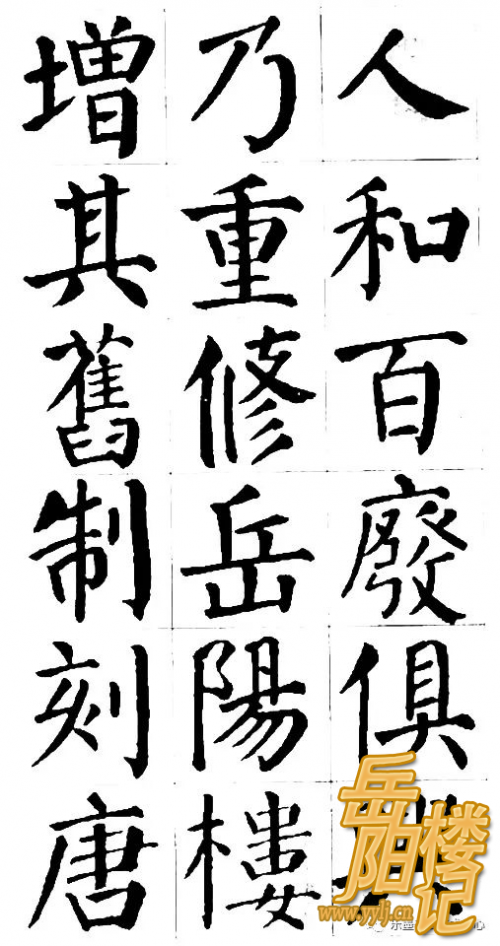 人和百廢俱
乃重修岳陽樓
增其舊制刻唐
岳阳楼记
www.yylj.cn